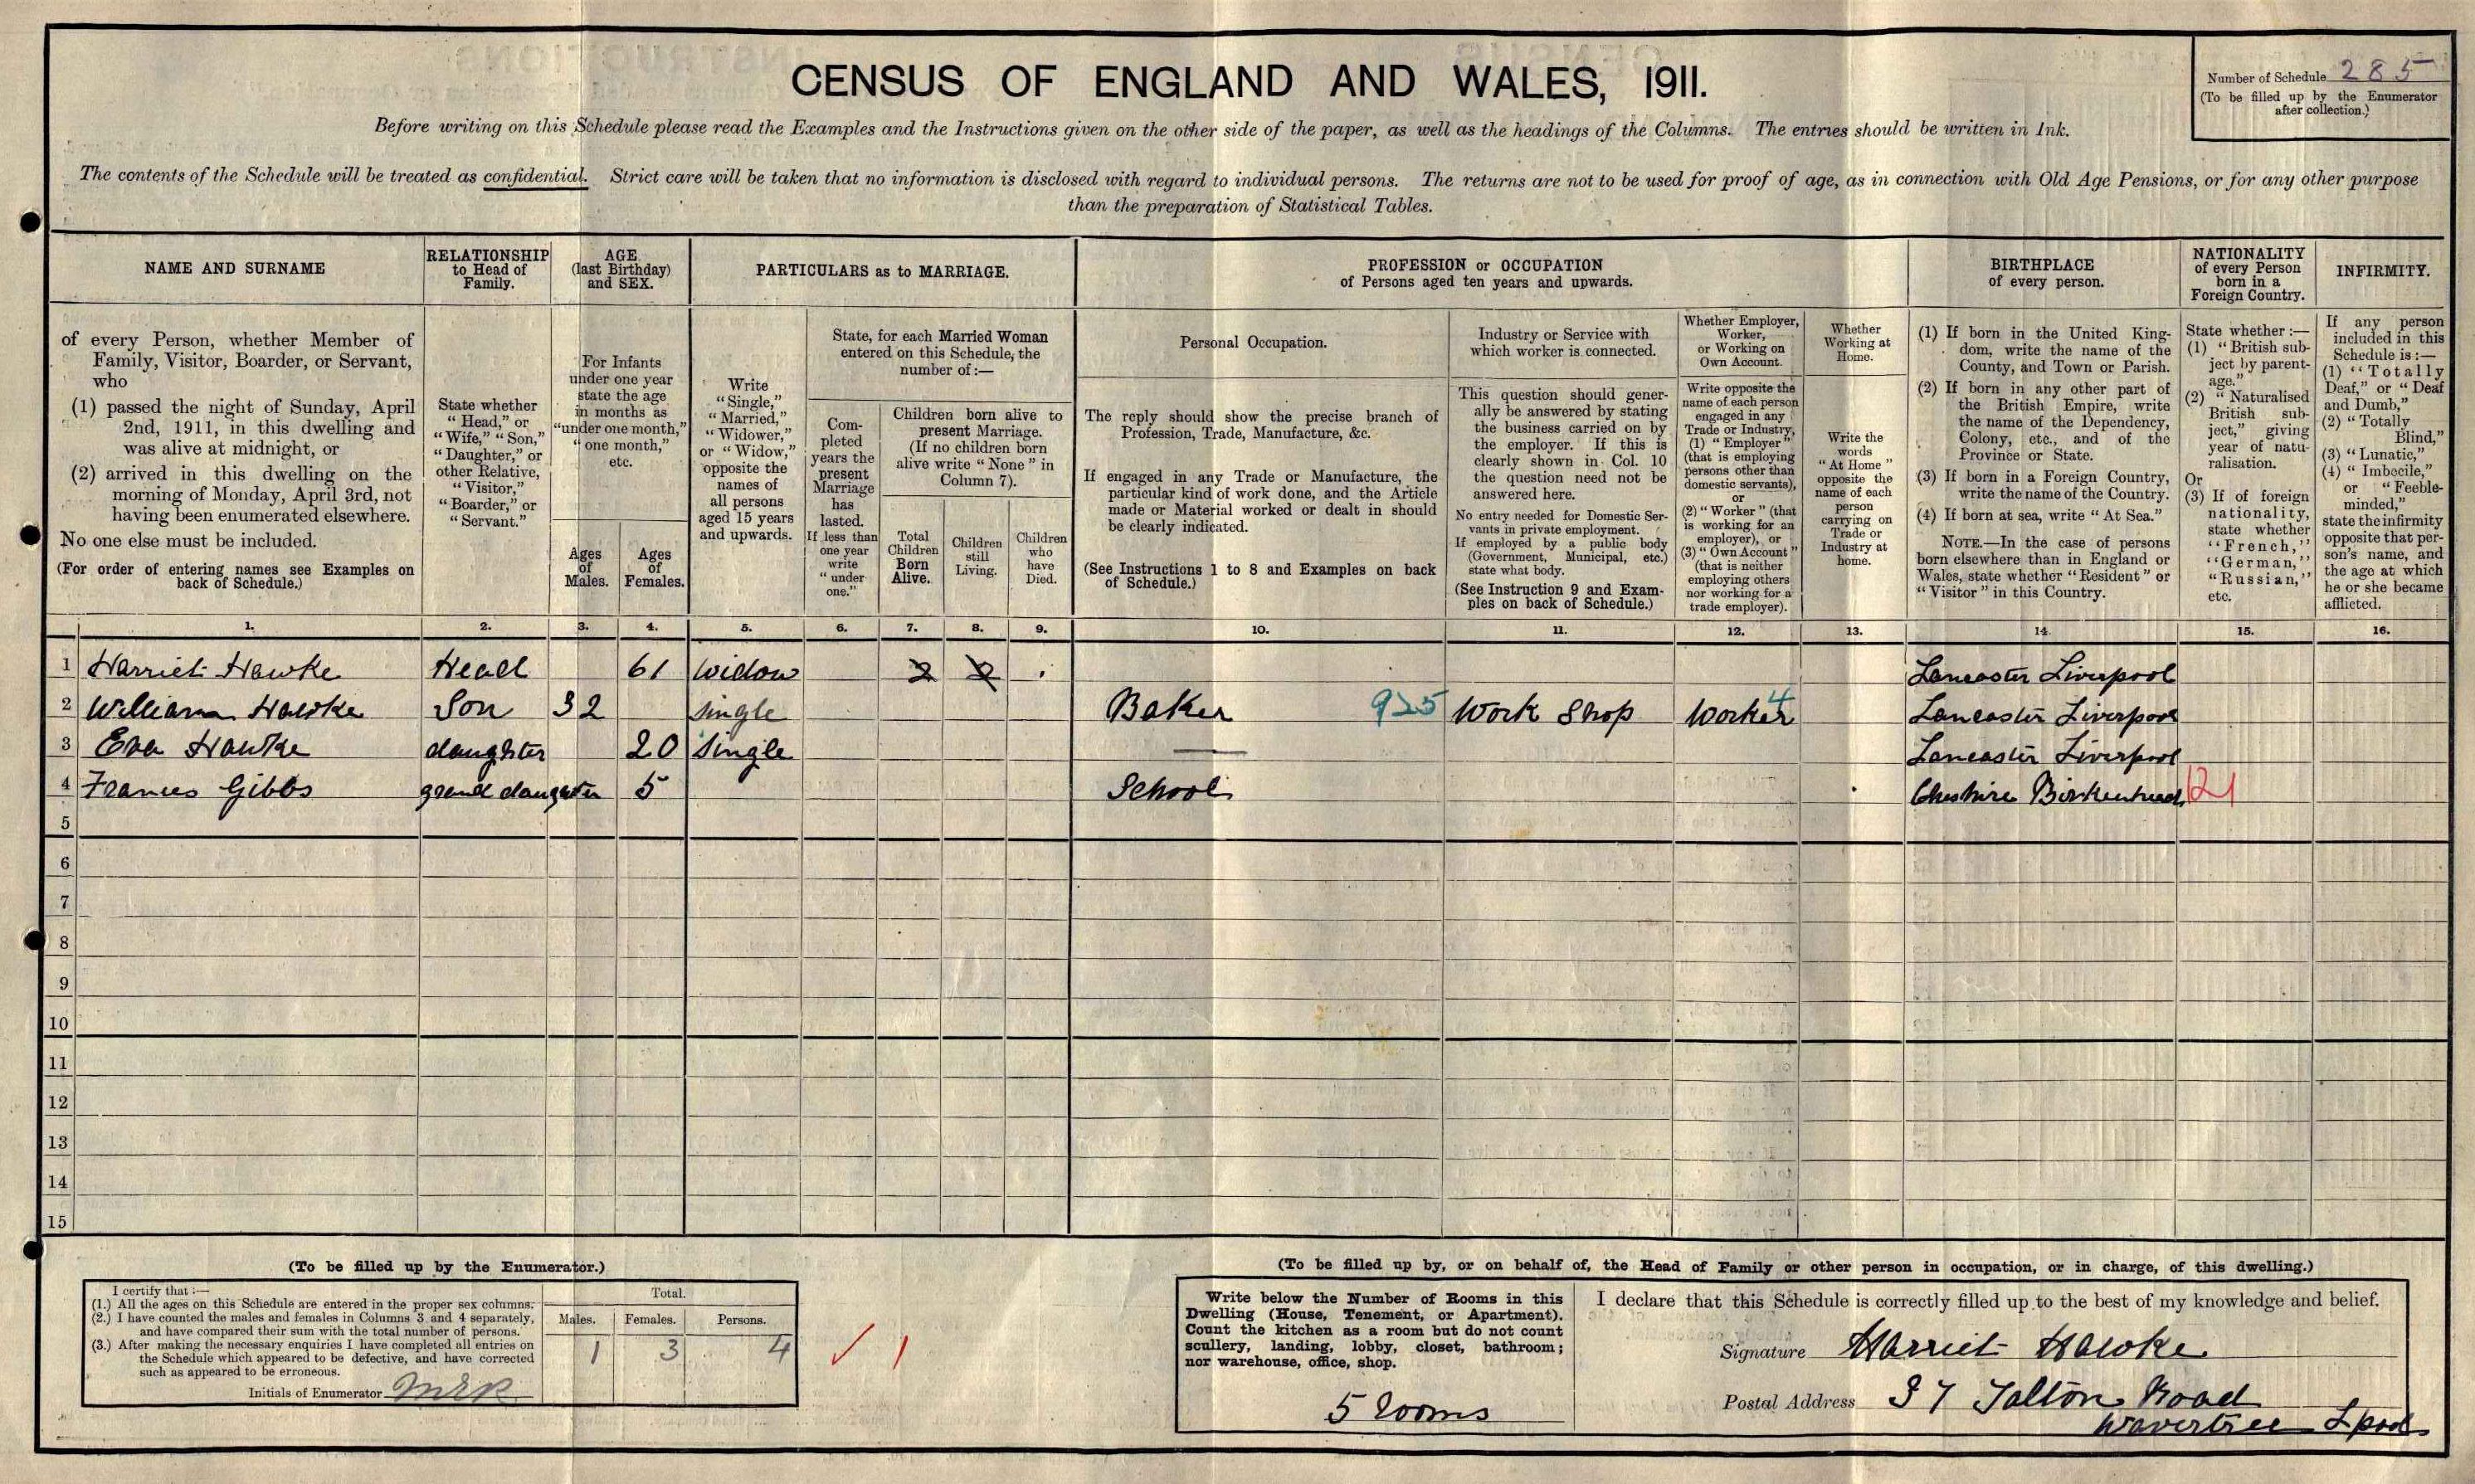 CENSUS OF ENGLAND AND WALES, 1911.
Number of Schedule 285
(To be filled up by the Enumerator
after collection.)
Before writing on this Schedule please read the Examples and the Instructions given on the other side of the paper, as well as the headings of the Columns. The entries should be written in Ink.
The contents of the Schedule will be treated as confidential. Strict care will be taken that no information is disclosed with regard to individual persons. The returns are not to be used for proof of age, as in connection with Old Age Pensions, or for any other purpose
than the preparation of Statistical Tables.
NAME AND SURNAME
of every Person, whether Member of
Family, Visitor, Boarder, or Servant,
who
(1) passed the night of Sunday, April
2nd, 1911, in this dwelling and
was alive at midnight, or
(2) arrived in this dwelling on the
morning of Monday, April 3rd, not
having been enumerated elsewhere.
No one else must be included.
(For order of entering names see Examples on
back of Schedule.)
RELATIONSHIP
to Head of
Family.
State whether
"Head," or
"Wife," "Son,"
"Daughter," or
other Relative,
"Visitor,"
"Boarder," or
"Servant."
AGE
(last Birthday)
and SEX.
For Infants
under one year
state the age
in months as
"under one month,"
"one month,"
etc.
Ages
of
Males.
Ages
of
Females.
PARTICULARS as to MARRIAGE.
Write
"Single,"
"Married,"
"Widower,"
or "Widow,"
opposite the
names of
all persons
aged 15 years
and upwards.
State, for each Married Woman
entered on this Schedule, the
number of:—
Com-
pleted
years the
present
Marriage
has
lasted.
If less than
one year
write
"under
one."
Children born alive to
present Marriage.
(If no children born
alive write "None" in
Column 7).
Total
Children
Born
Alive.
Children
still
Living.
Children
who
have
Died.
PROFESSION or OCCUPATION
of Persons aged ten years and upwards.
Personal Occupation.
The reply should show the precise branch of
Profession, Trade, Manufacture, &c.
If engaged in any Trade or Manufacture, the
particular kind of work done, and the Article
made or Material worked or dealt in should
be clearly indicated.
(See Instructions 1 to 8 and Examples on back
of Schedule.)
Industry or Service with
which worker is connected.
This question should gener-
ally be answered by stating
the business carried on by
the employer. If this is
clearly shown in Col. 10
the question need not be
answered here.
No entry needed for Domestic Ser-
vants in private employment.
If employed by a public body
(Government, Municipal, etc.)
state what body.
(See Instruction 9 and Exam-
ples on back of Schedule.)
Whether Employer,
Worker,
or Working on
Own Account.
Write opposite the
name of each person
engaged in any
Trade or Industry,
(1) "Employer"
(that is employing
persons other than
domestic servants),
or
(2) "Worker" (that
is working for an
employer), or
(3) "Own Account"
(that is neither
employing others
nor working for a
trade employer).
Whether
Working at
Home.
Write the
words
"At Home"
opposite the
name of each
person
carrying on
Trade or
Industry at
home.
BIRTHPLACE
of every person.
(1) If born in the United King-
dom, write the name of the
County, and Town or Parish.
(2) If born in any other part of
the British Empire, write
the name of the Dependency,
Colony, etc., and of the
Province or State.
(3) If born in a Foreign Country,
write the name of the Country.
(4) If born at sea, write "At Sea."
NOTE.—In the case of persons
born elsewhere than in England or
Wales, state whether "Resident" or
"Visitor" in this Country.
NATIONALITY
of every Person
born in a
Foreign Country.
State whether:—
(1) "British sub-
ject by parent-
age."
(2) "Naturalised
British sub-
ject," giving
year of natu-
ralisation.
Or
(3) If of foreign
nationality,
state whether
"French,"
"German,"
"Russian,"
etc.
INFIRMITY.
If any person
included in this
Schedule is:—
(1) "Totally
Deaf," or "Deaf
and Dumb,"
(2) "Totally
Blind,"
(3) "Lunatic,"
(4) "Imbecile,"
or "Feeble-
minded,"
state the infirmity
opposite that per-
son's name, and
the age at which
he or she became
afflicted.
1. 2. 3. 4. 5. 6. 7. 8. 9. 10. 11. 12. 13. 14. 15. 16.
1 Harriet Hawke Head 61 Widow 2 2 Lancaster Liverpool
2 William Hawke Son 32 single Baker 925 Work Shop Worker 4 Lancaster Liverpool
3 Eva Hawke daughter 20 single — Lancaster Liverpool
4 Frances Gibbs grand daughter 5 School Cheshire Birkenhead 121
5
6
7
8
9
10
11
12
13
14
15
(To be filled up by the Enumerator.)
I certify that:—
(1.) All the ages on this Schedule are entered in the proper sex columns.
(2.) I have counted the males and females in Columns 3 and 4 separately,
and have compared their sum with the total number of persons.
(3.) After making the necessary enquiries I have completed all entries on
the Schedule which appeared to be defective, and have corrected
such as appeared to be erroneous.
Initials of Enumerator
Total.
Males. Females. Persons.
1 3 4 ✓ 1
(To be filled up by, or on behalf of, the Head of Family or other person in occupation, or in charge, of this dwelling.)
Write below the Number of Rooms in this
Dwelling (House, Tenement, or Apartment).
Count the kitchen as a room but do not count
scullery, landing, lobby, closet, bathroom;
nor warehouse, office, shop.
5 rooms
I declare that this Schedule is correctly filled up to the best of my knowledge and belief.
Signature Harriet Hawke
Postal Address 37 Talton Road
Wavertree Lpool